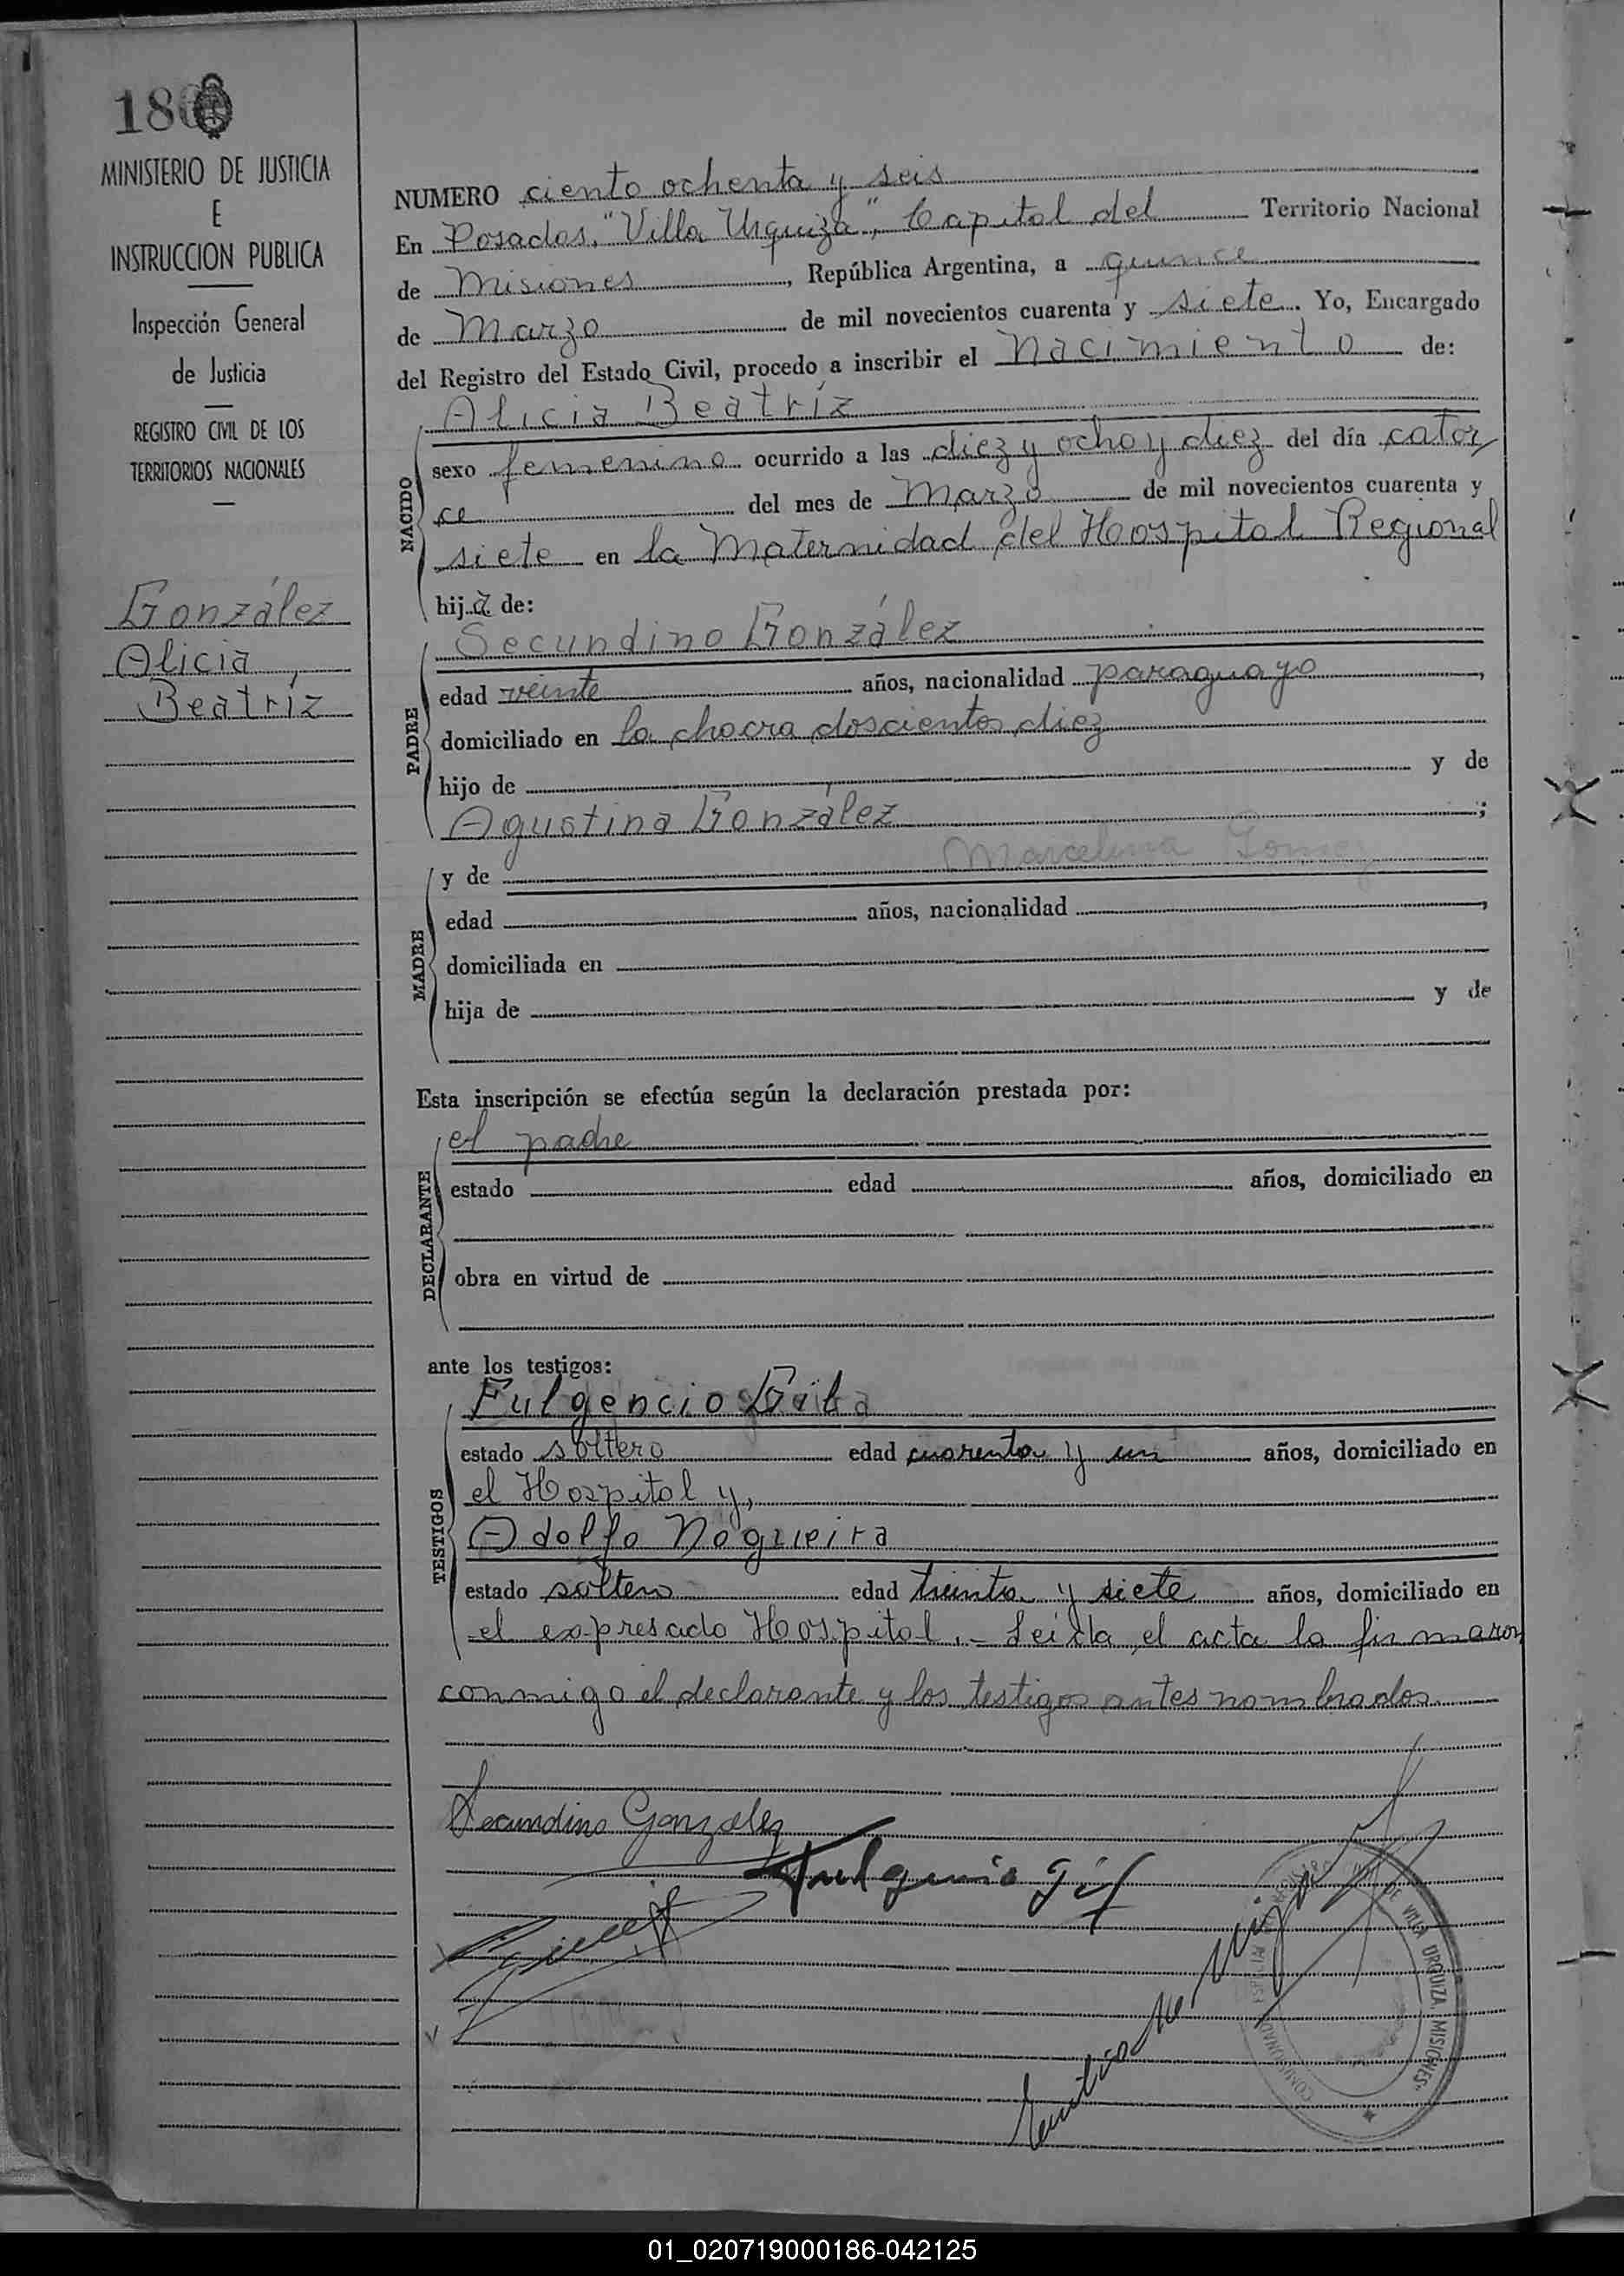 186
MINISTERIO DE JUSTICIA
E
INSTRUCCION PUBLICA
Inspección General
de Justicia
REGISTRO CIVIL DE LOS
TERRITORIOS NACIONALES
González
Alicia
Beatríz
NUMERO ciento ochenta y seis
En Posadas, "Villa Urquiza", Capital del Territorio Nacional
de Misiones, República Argentina, a quince
de Marzo de mil novecientos cuarenta y siete. Yo, Encargado
del Registro del Estado Civil, procedo a inscribir el Nacimiento de:
NACIDO
Alicia Beatríz
sexo femenino ocurrido a las diez y ocho y diez del día cator
ce del mes de Marzo de mil novecientos cuarenta y
siete en la Maternidad del Hoospital Regional
hija de:
PADRE
Secundino González
edad veinte años, nacionalidad paraguayo,
domiciliado en la chacra doscientos diez
hijo de y de
Agustina González;
MADRE
y de Marcelina Gomez
edad años, nacionalidad,
domiciliada en
hija de y de
Esta inscripción se efectúa según la declaración prestada por:
DECLARANTE
el padre
estado edad años, domiciliado en
obra en virtud de
ante los testigos:
TESTIGOS
Fulgencio
estado soltero edad cuarenta y un años, domiciliado en
el Hospital y,
Adolfo Nogueira
estado soltero edad treinta y siete años, domiciliado en
el expresado Hospital.- Leída el acta la firmaron
conmigo el declarante y los testigos antes nombrados
Secundino Gonzalez
Fulgencio Gil
Emilio
DE VILLA URQUIZA MISIONES"
01_020719000186-042125